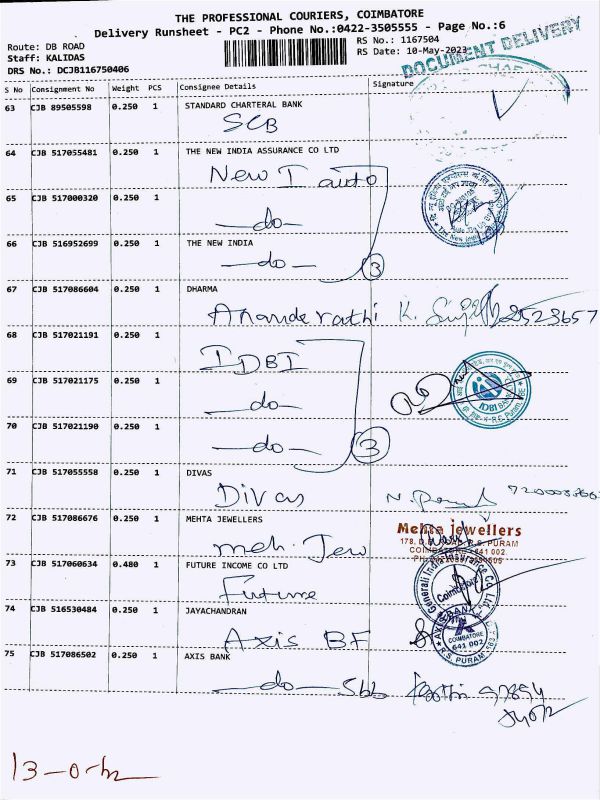 THE PROFESSIONAL COURIERS, COIMBATORE
Delivery Runsheet - PC2 - Phone No.:0422-3505555 - Page No.:6
Route: DB ROAD
Staff: KALIDAS
DRS No.: DCJB116750406
RS No.: 1167504
RS Date: 10-May-2023
DOCUMENT DELIVERY
S No Consignment No Weight PCS Consignee Details Signature
63 CJB 89505598 0.250 1 STANDARD CHARTERAL BANK
SCB
64 CJB 517055481 0.250 1 THE NEW INDIA ASSURANCE CO LTD
New I auto
65 CJB 517000320 0.250 1
do
66 CJB 516952699 0.250 1 THE NEW INDIA
do
3
67 CJB 517086604 0.250 1 DHARMA
Anande rathi K.
68 CJB 517021191 0.250 1
IDBI
69 CJB 517021175 0.250 1
do
IDBI BANK
R.S. Puram, CBE
70 CJB 517021190 0.250 1
do
3
71 CJB 517055558 0.250 1 DIVAS
Divas N.
72 CJB 517086676 0.250 1 MEHTA JEWELLERS
meh. Jew
Mehta jewellers
178, D.B. ROAD, R.S. PURAM
COIMBATORE 641 002
73 CJB 517060634 0.480 1 FUTURE INCOME CO LTD
Future
Generali India Insurance Co. Ltd.
Coimbatore
74 CJB 516530484 0.250 1 JAYACHANDRAN
Axis BF
AXIS BANK
COIMBATORE
641 002
R.S. PURAM
75 CJB 517086502 0.250 1 AXIS BANK
do Sbb